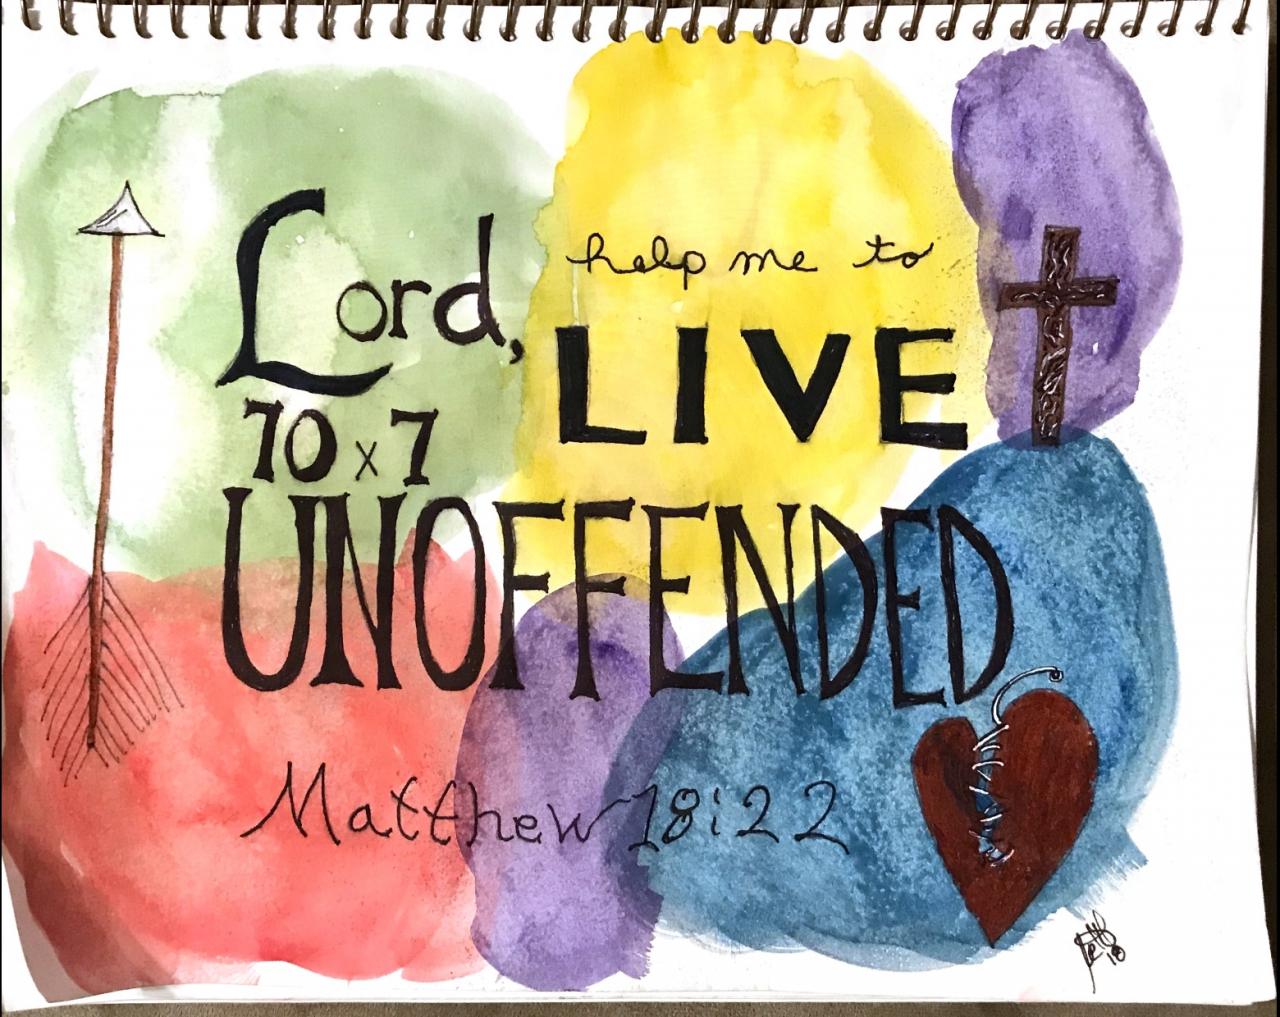 Lord, help me to
LIVE
70 x 7
UNOFFENDED
Matthew 18:22